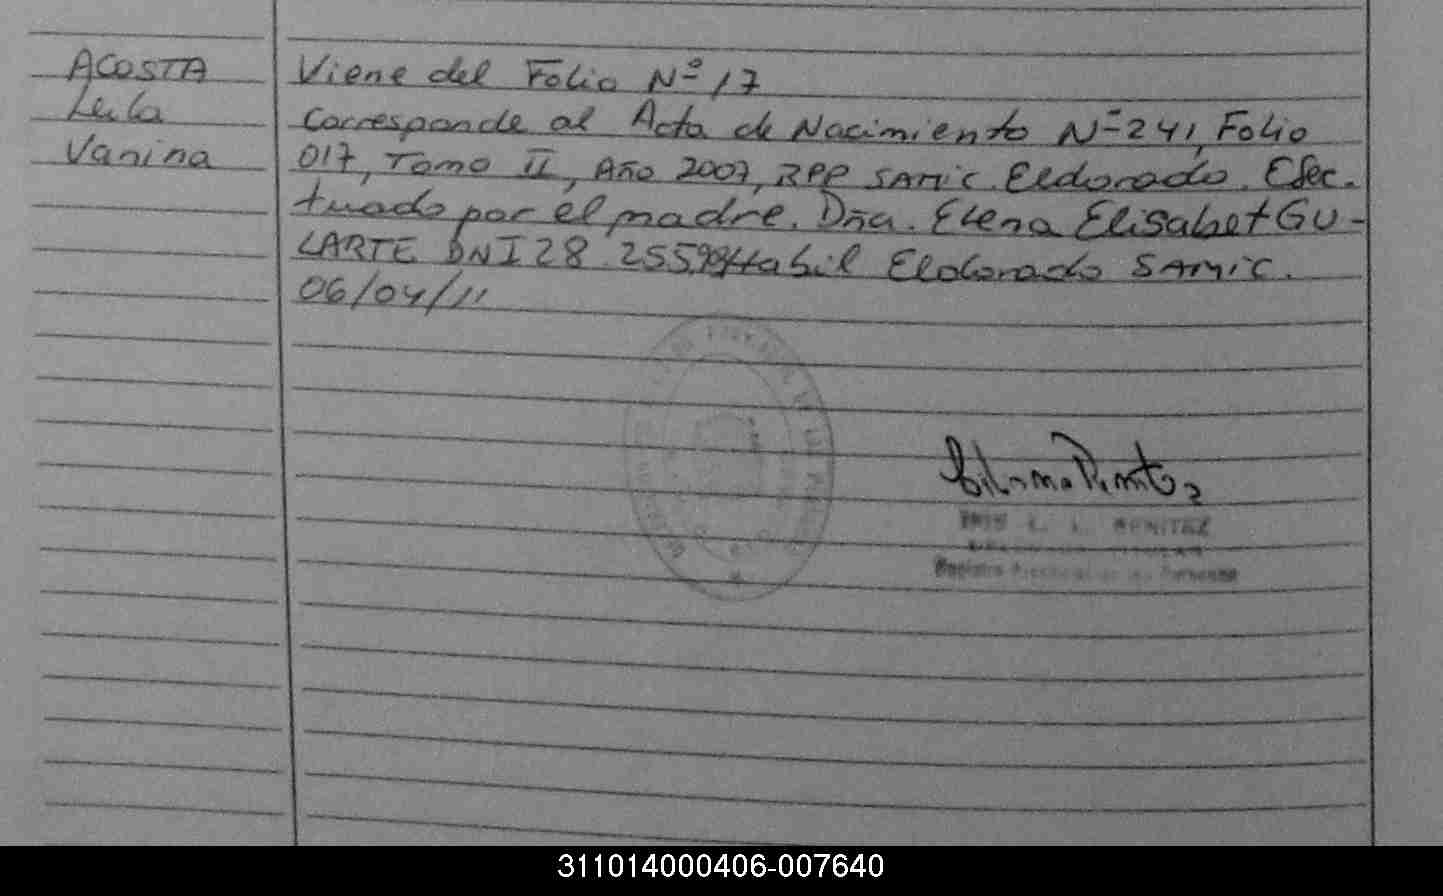 ACOSTA
Leila
Vanina
Viene del Folio Nº 17
Corresponde al Acta de Nacimiento Nº 241, Folio
017, Tomo II, Año 2007, RPP SAMIC Eldorado. Efec-
tuado por el madre. Dña. Elena Elisabet GU-
LARTE DNI 28.255.994 Habil Eldorado SAMIC.
06/04/11
L. L. BENITEZ
Registro Provincial de las Personas
311014000406-007640